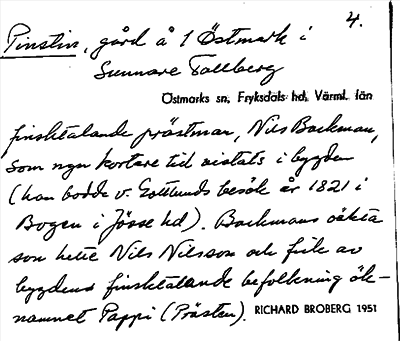 4.
Pinstin, gård å 1 Östmark i
Gunnare Tallberg
Östmarks sn, Fryksdals hd, Värml. län
finsktalande prästman, Nils Backman,
som nyn kortare tid vistats i bygden
(han bodde v. Gottlunds besök år 1821 i
Bogen i Jösse hd). Backmans oäkta
son hette Nils Nilsson och fick av
bygdens finsktalande befolkning ök-
namnet Pappi (Prästen). RICHARD BROBERG 1951